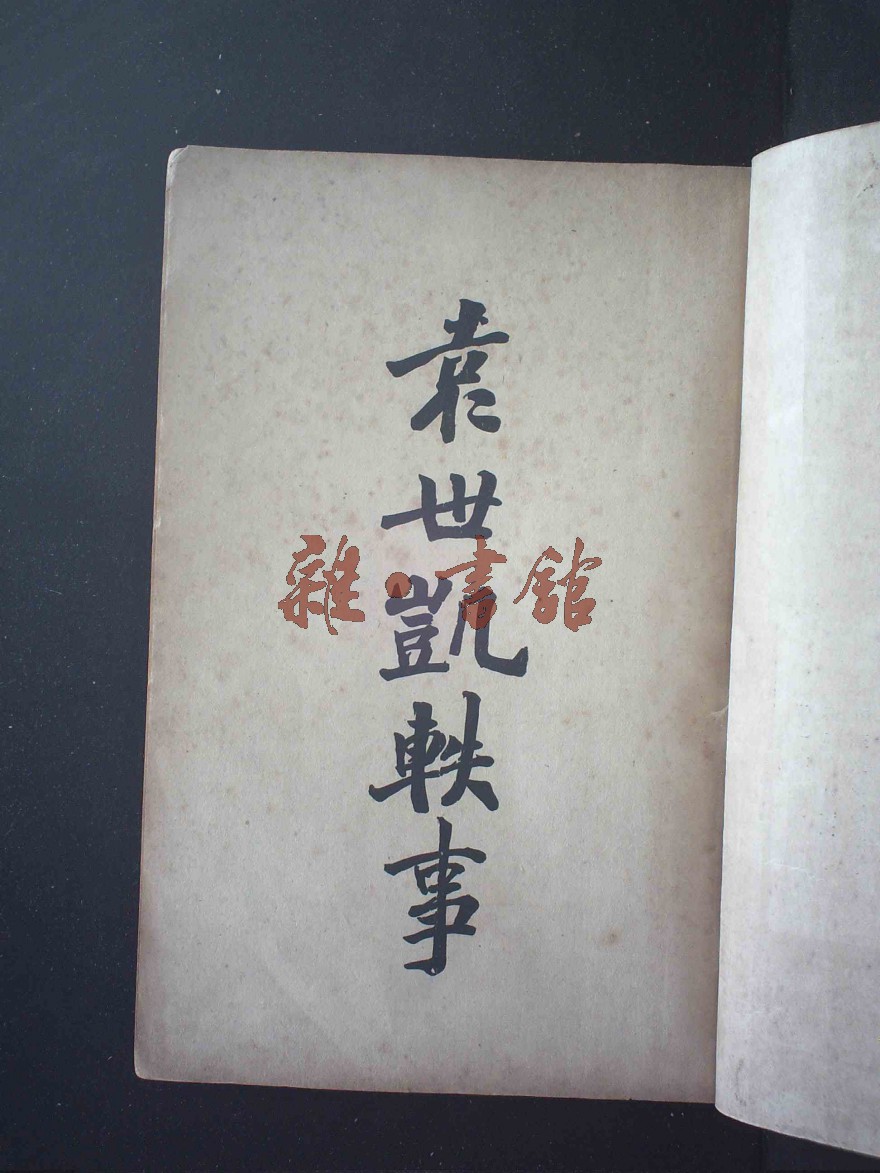 袁世凱軼事
雜·書館